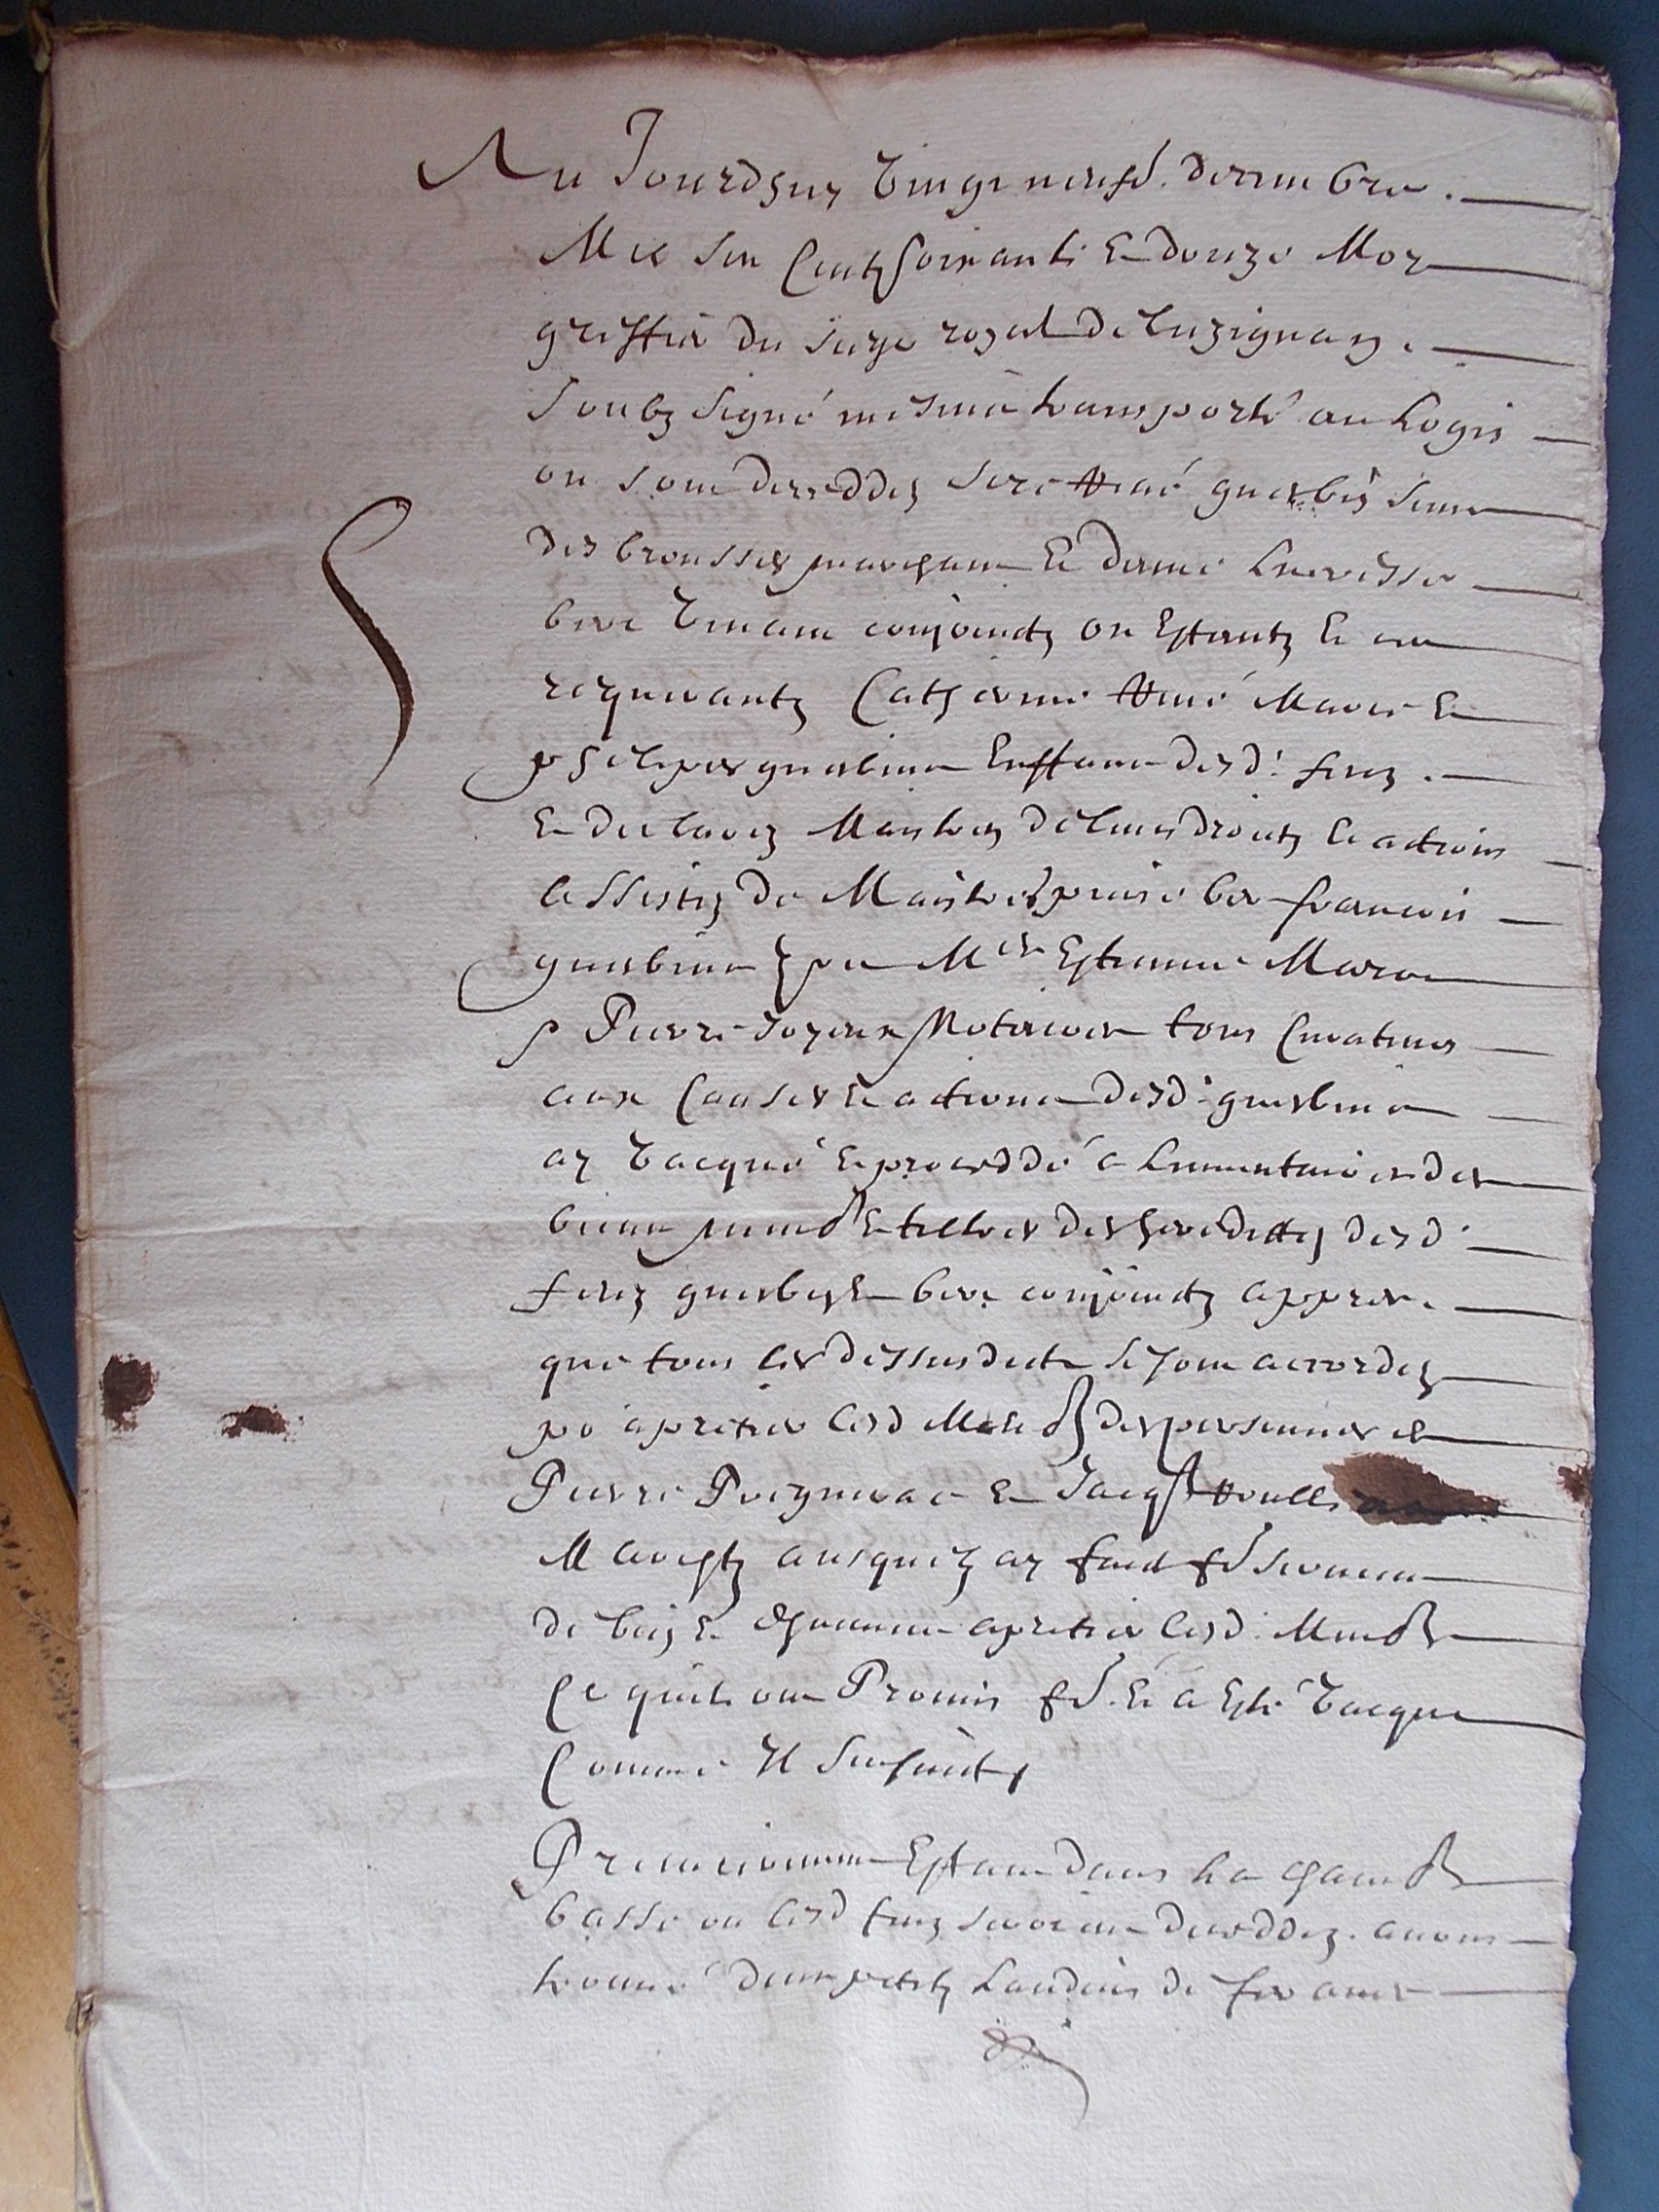 Au Jourdhuy vingt neufe. decembre.
Mil six Centz soixante Et douze Moy
greffier du siege royal de luzignan.
Soubz signé me suis transporté au Logis
ou sont deceddez sire René guerbin sieur
des brousses marchant Et dame Louisse
vivant conjoinctz ou Estantz Et nous
requerantz Catherine René Marie Et
guerbin Enffans desd. feuz.
Et declarez Maistres de leurs droictz Et actions
assistez de Maistres ber francois
guerbin Mes Estienne
Pierre Notaires tous Curateurs
aux Causes Et actions desd. guerbin
ay vacqué Et proceddé a Linventaire des
biens meubles Et tiltres des heredittez desd.
feuz guerbin Et conjoinctz appres.
que tous les dessus dictz se sont accordez
po apretier lesd Meubles des personnes de
Pierre Et Jacqs
Marchtz ausquelz ay faict fe serment
de bien Et apretier lesd. Meubles
Ce quils ont Promis fe. Et a Esté vacque
Comme Il sensuict
Premierement Estant dans La chambre
basse ou lesd feuz seroient deceddez. avons
trouvé deux petitz Landiers de fer avec